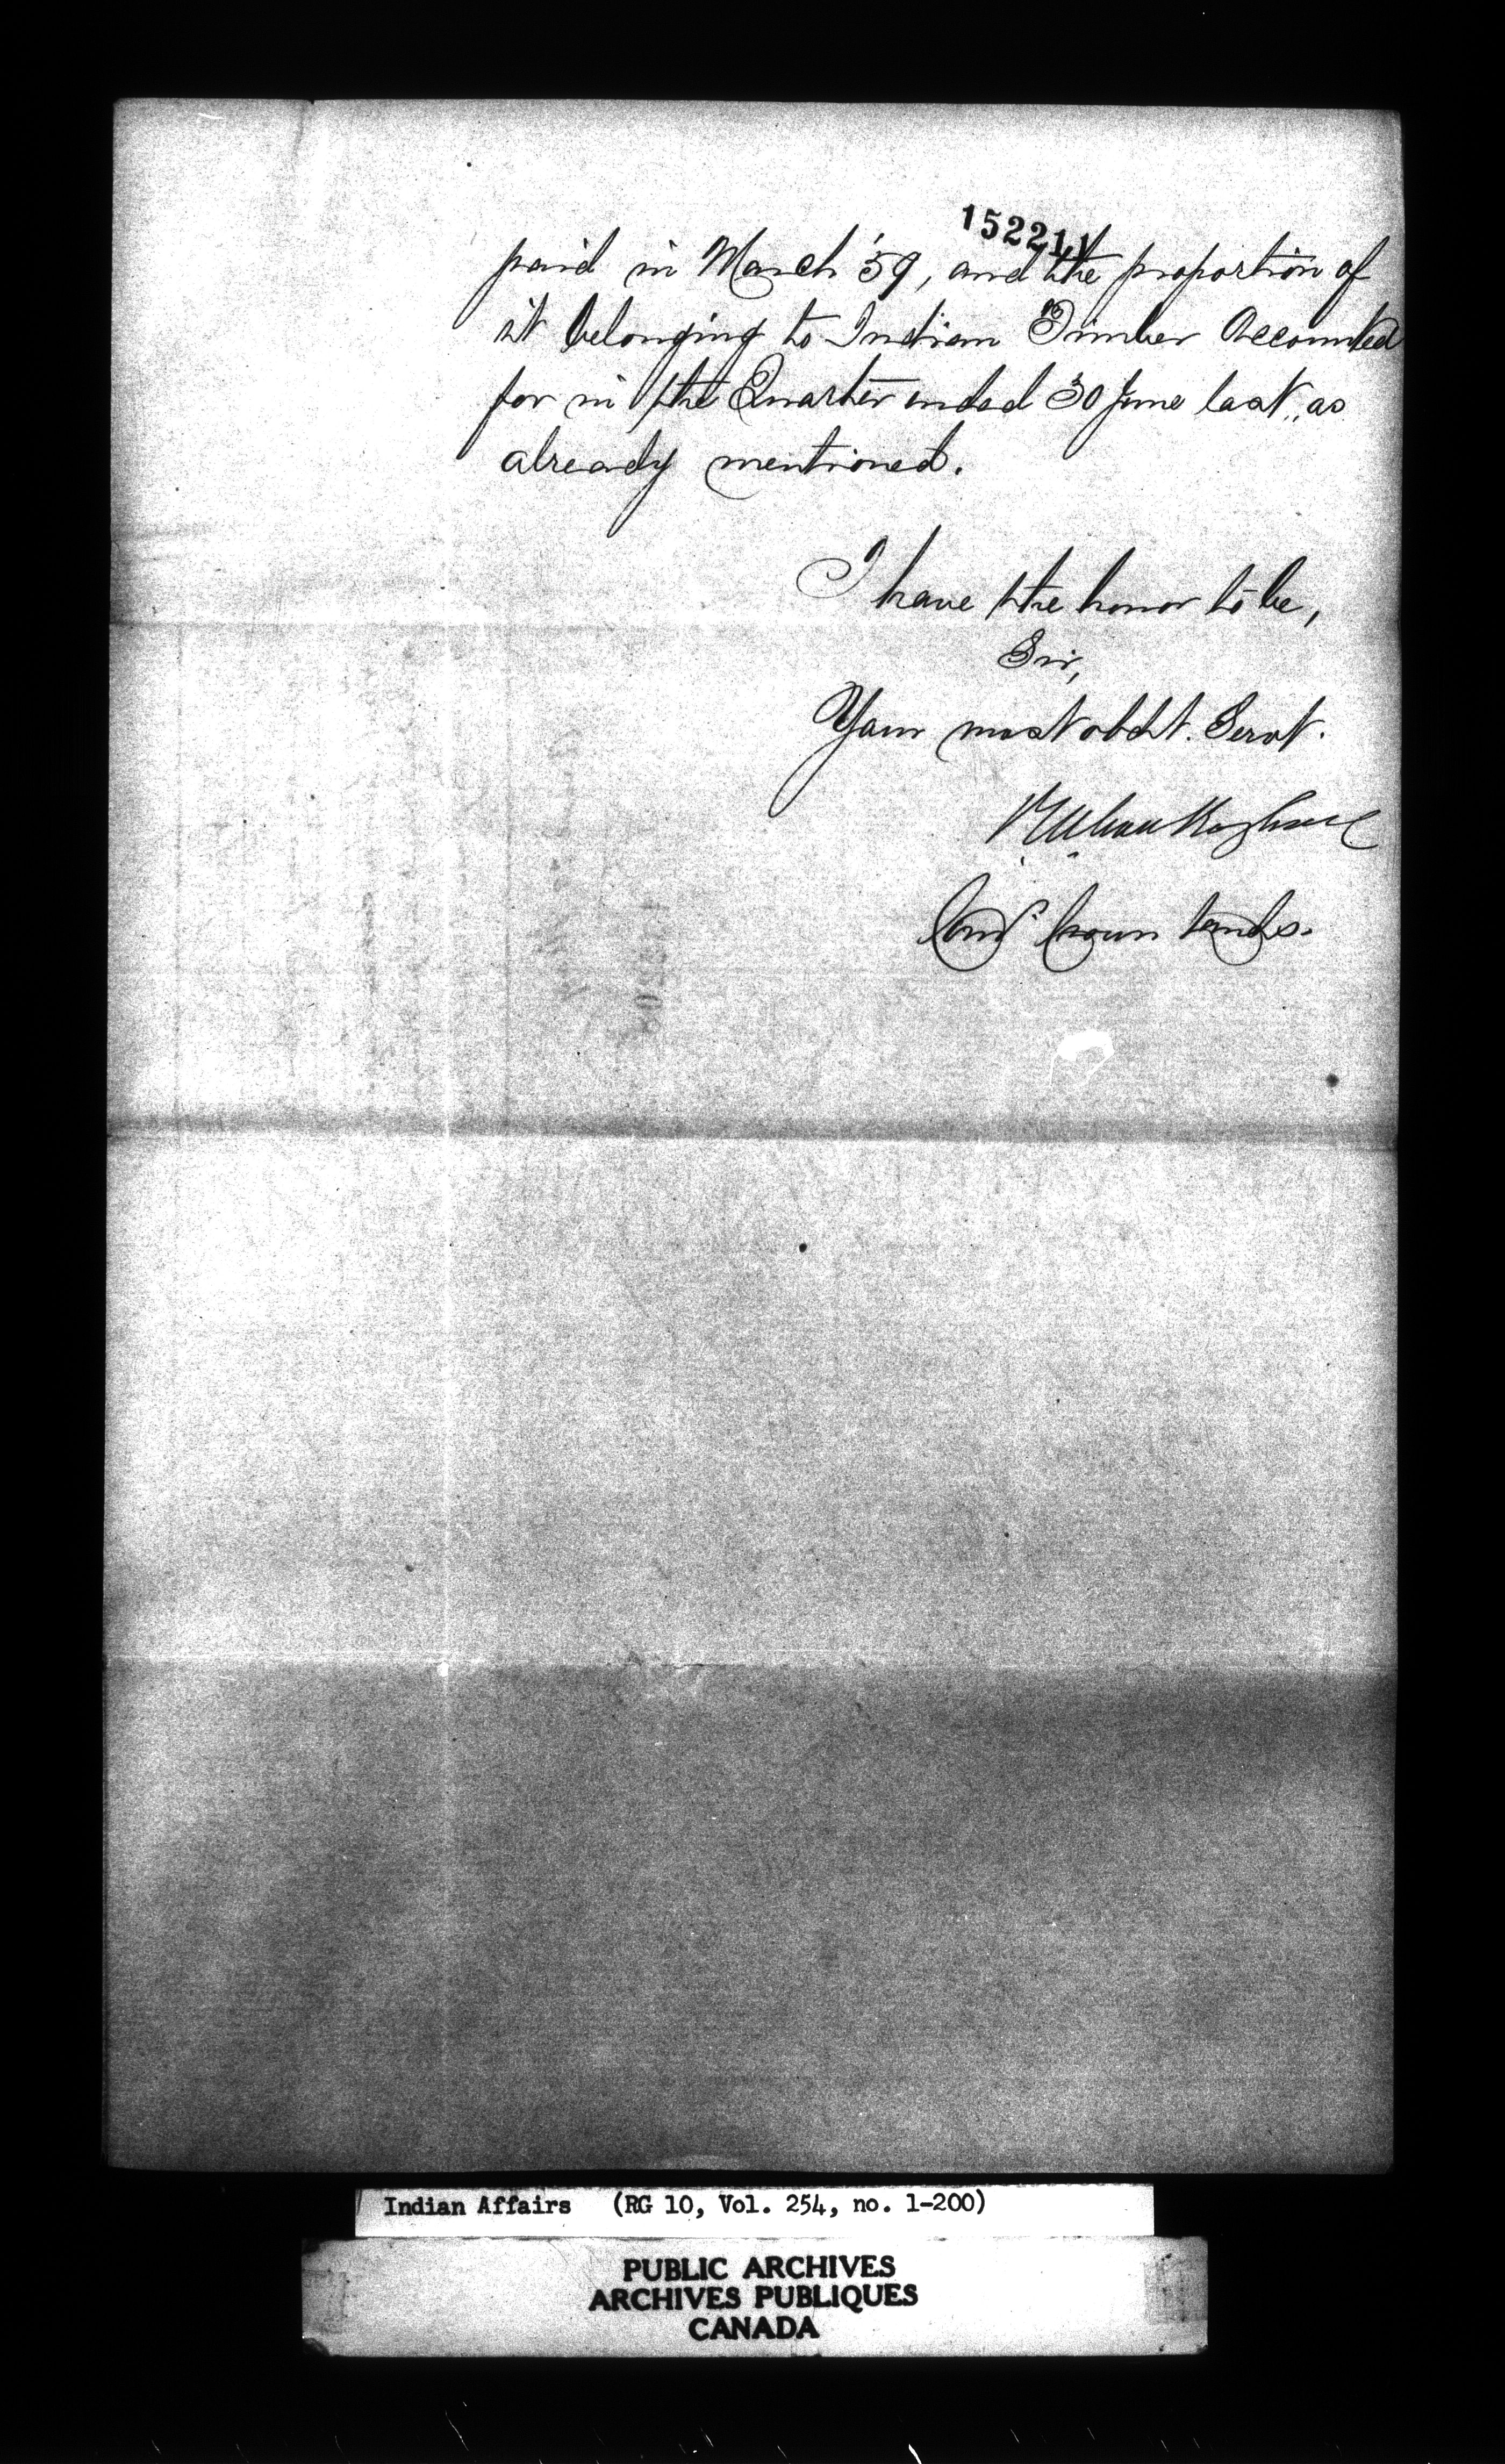 152211
paid in March '59, and the proportion of
it belonging to Indian Timber Accounted
for in the Quarter ended 30 June last, as
already mentioned.
I have the honor to be,
Sir,
Your most obdt. Servt.
Comr. Crown Lands.
Indian Affairs (RG 10, Vol. 254, no. 1-200)
PUBLIC ARCHIVES
ARCHIVES PUBLIQUES
CANADA